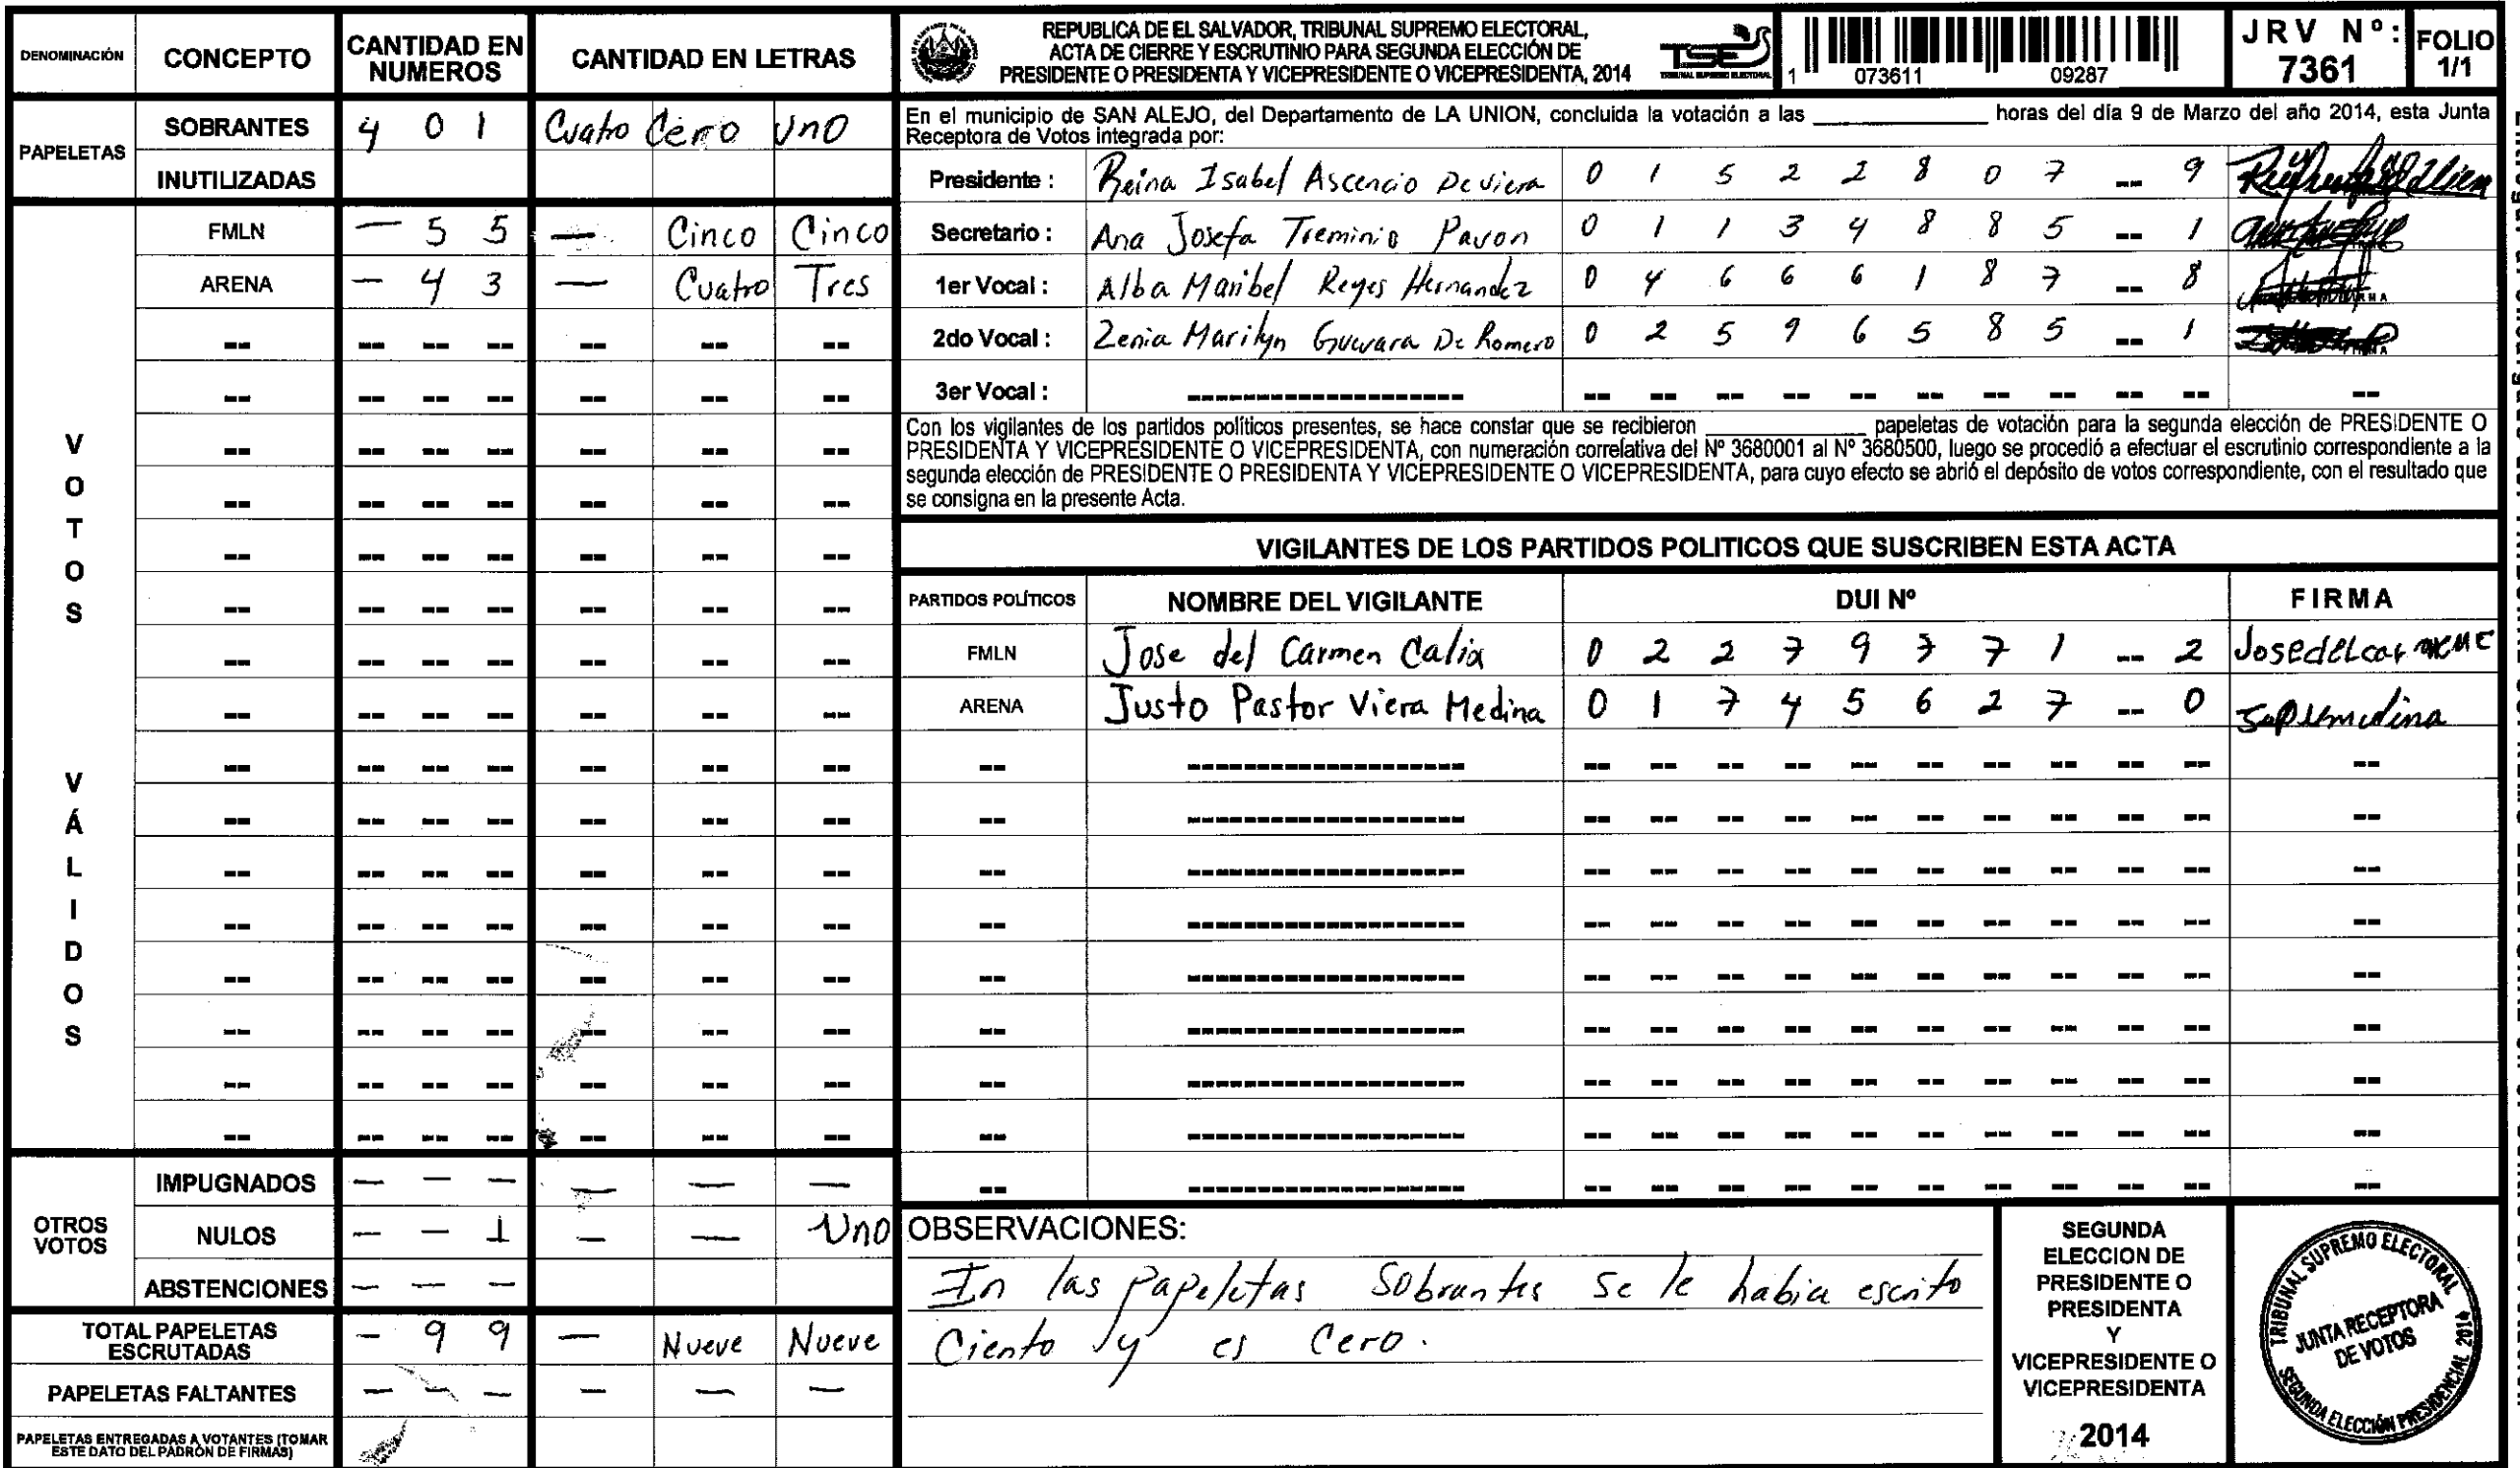 DENOMINACIÓN CONCEPTO CANTIDAD EN NUMEROS CANTIDAD EN LETRAS
PAPELETAS
SOBRANTES 4 0 1 Cuatro Cero Uno
INUTILIZADAS
VOTOS VÁLIDOS
FMLN — 5 5 — Cinco Cinco
ARENA — 4 3 — Cuatro Tres
OTROS VOTOS
IMPUGNADOS — — — — — —
NULOS — — 1 — — Uno
ABSTENCIONES — — —
TOTAL PAPELETAS ESCRUTADAS — 9 9 — Nueve Nueve
PAPELETAS FALTANTES — — — — — —
PAPELETAS ENTREGADAS A VOTANTES (TOMAR
ESTE DATO DEL PADRÓN DE FIRMAS)
REPUBLICA DE EL SALVADOR, TRIBUNAL SUPREMO ELECTORAL,
ACTA DE CIERRE Y ESCRUTINIO PARA SEGUNDA ELECCIÓN DE
PRESIDENTE O PRESIDENTA Y VICEPRESIDENTE O VICEPRESIDENTA, 2014
TSE
TRIBUNAL SUPREMO ELECTORAL
1 073611 09287
JRV Nº: 7361
FOLIO 1/1
En el municipio de SAN ALEJO, del Departamento de LA UNION, concluida la votación a las ____________ horas del día 9 de Marzo del año 2014, esta Junta
Receptora de Votos integrada por:
Presidente : Reina Isabel Ascencio De Viera 0 1 5 2 2 8 0 7 -- 9
Secretario : Ana Josefa Treminio Pavon 0 1 1 3 4 8 8 5 -- 1
1er Vocal : Alba Maribel Reyes Hernandez 0 4 6 6 6 1 8 7 -- 8
2do Vocal : Zenia Marilyn Guevara De Romero 0 2 5 9 6 5 8 5 -- 1
3er Vocal :
Con los vigilantes de los partidos políticos presentes, se hace constar que se recibieron ____________ papeletas de votación para la segunda elección de PRESIDENTE O
PRESIDENTA Y VICEPRESIDENTE O VICEPRESIDENTA, con numeración correlativa del Nº 3680001 al Nº 3680500, luego se procedió a efectuar el escrutinio correspondiente a la
segunda elección de PRESIDENTE O PRESIDENTA Y VICEPRESIDENTE O VICEPRESIDENTA, para cuyo efecto se abrió el depósito de votos correspondiente, con el resultado que
se consigna en la presente Acta.
VIGILANTES DE LOS PARTIDOS POLITICOS QUE SUSCRIBEN ESTA ACTA
PARTIDOS POLÍTICOS NOMBRE DEL VIGILANTE DUI Nº FIRMA
FMLN Jose del Carmen Calix 0 2 2 7 9 7 7 1 -- 2
ARENA Justo Pastor Viera Medina 0 1 7 4 5 6 2 7 -- 0
OBSERVACIONES:
En las papeletas Sobrantes se le habia escrito
Ciento y es Cero.
SEGUNDA
ELECCION DE
PRESIDENTE O
PRESIDENTA
Y
VICEPRESIDENTE O
VICEPRESIDENTA
2014
TRIBUNAL SUPREMO ELECTORAL
JUNTA RECEPTORA
DE VOTOS
SEGUNDA ELECCIÓN PRESIDENCIAL 2014